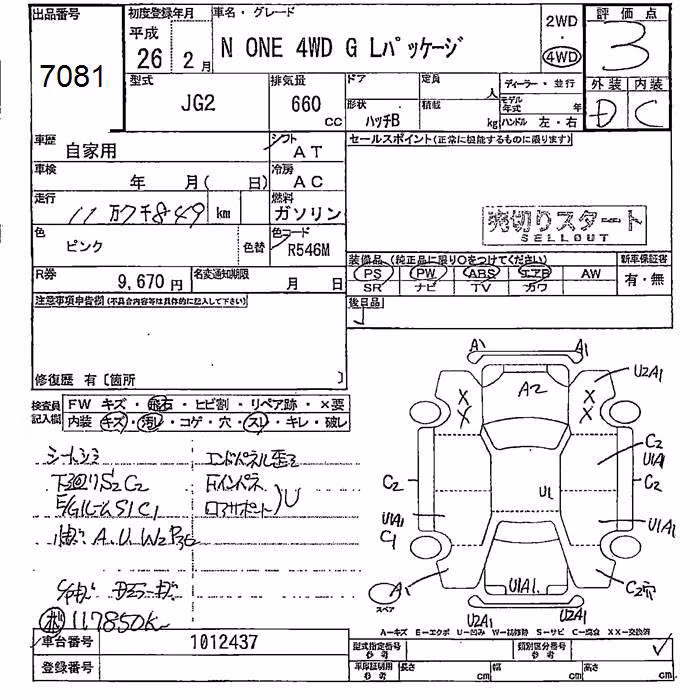 出品番号
7081
初度登録年月
平成 26 年 2 月
車名・グレード
N ONE 4WD G Lパッケージ
2WD
・
4WD
評価点
3
外装 内装
D C
型式
JG2
排気量
660 CC
ドア
形状
ハッチB
定員 人
積載 kg
ディーラー・並行
モデル年式 年
ハンドル 左・右
車歴
自家用
シフト
AT
車検
年 月( 日)
冷房
AC
走行
11万7千849 km
燃料
ガソリン
色
ピンク
色替
色コード
R546M
R券
9,670円
名変通知期限
月 日
セールスポイント(正常に機能するものに限ります)
売切りスタート
SELLOUT
装備品(純正品に限り○をつけてください)
PS PW ABS エアB AW
SR ナビ TV カワ
新車保証書
有・無
後日品
注意事項申告欄(不具合内容等は具体的に記入して下さい)
修復歴 有〔箇所 〕
検査員記入欄
FW キズ・飛石・ヒビ割・リペア跡・×要
内装 キズ・汚レ・コゲ・穴・スレ・キレ・破レ
シートシミ
下廻りS2C2
E/GルームS1C1
小キズ A.U.W2 P36
エンドパネル歪ミ
Fインパネ
ロアサポート)U
117850K
車台番号
1012437
登録番号
A1 A1
A2
U2A1
X X
X X
C2
U1A1
C2 C2
U1
U1A1
C1
U1A1
A1
U1A1
C2穴
スペア
U2A1 U2A1
A−キズ E−エクボ U−凹み W−補修跡 S−サビ C−腐食 XX−交換済
型式指定番号 参考
類別区分番号 参考
車庫証明用 参考
長さ cm 幅 cm 高さ cm